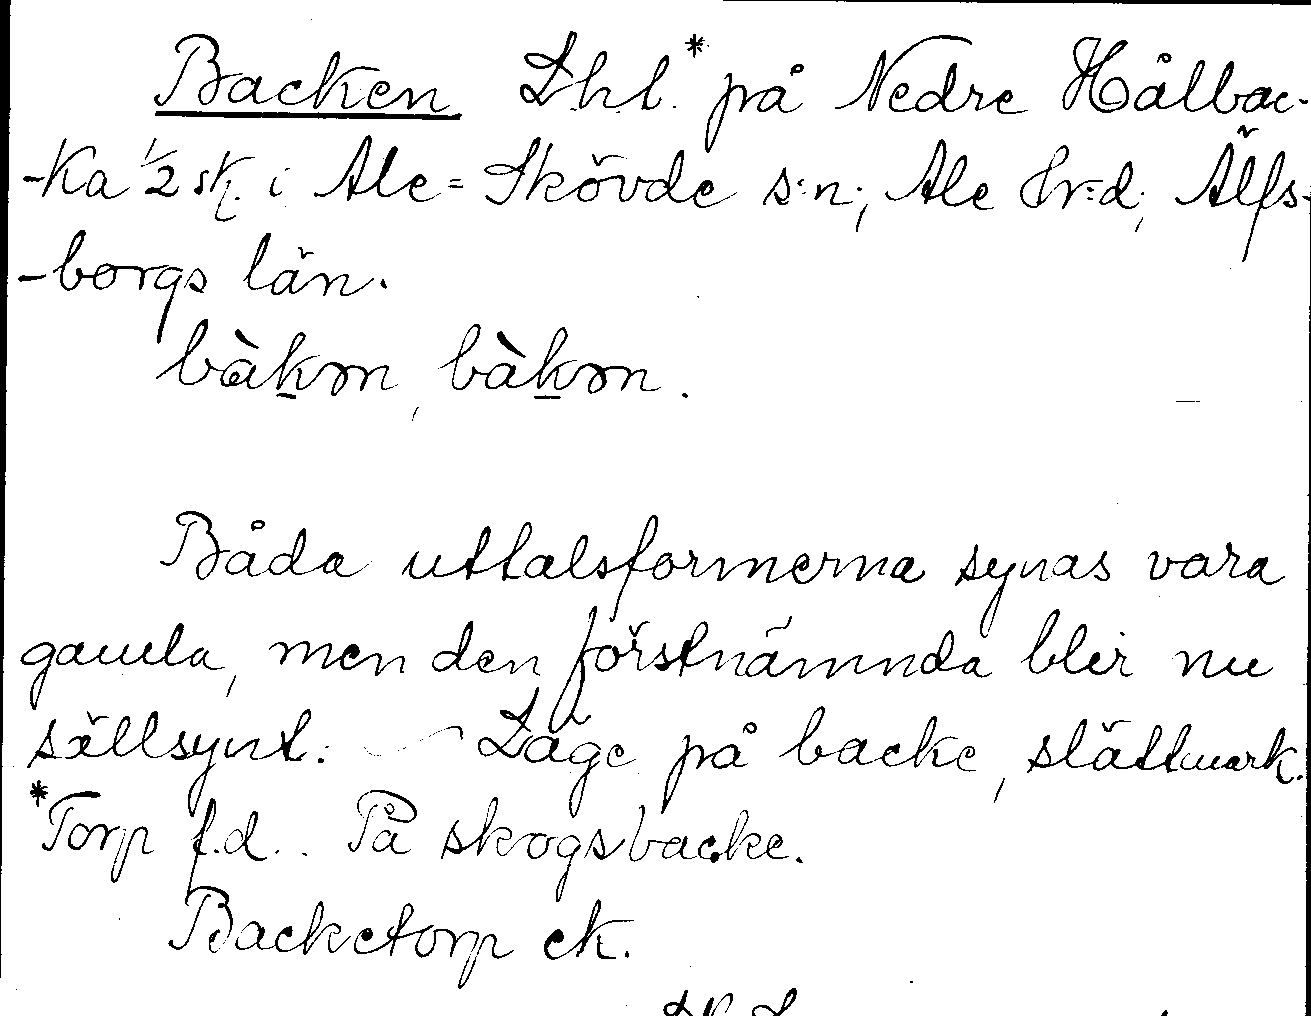 Backen Lhl.* på Nedre Hålbac-
-ka 1/2 sk. i Ale-Skövde s:n, Ale Hr:d, Älfs-
-borgs län.
bàkɷn, bàkɷn.
Båda uttalsformerna synas vara
gamla, men den förstnämnda blir nu
sällsynt. — Läge på backe, slättmark.
*Torp f.d.. På skogsbacke.
Backetorp ek.